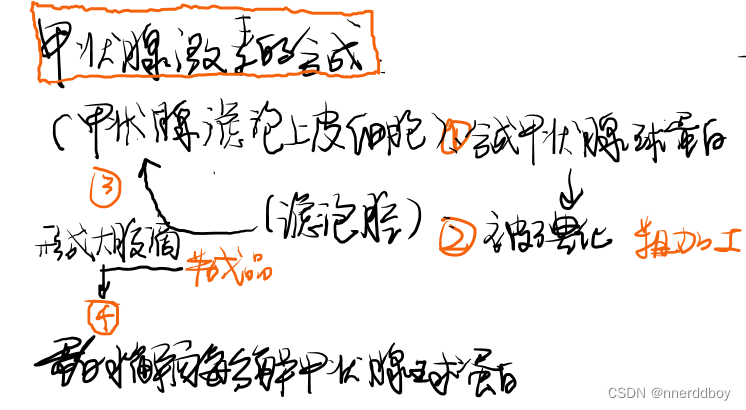 甲状腺激素的合成
(甲状腺滤泡上皮细胞) ① 合成甲状腺球蛋白
③
(滤泡腔) ② 被碘化 粗加工
形成大胶滴
半成品
④
蛋白水解酶分解甲状腺球蛋白
CSDN @nnerddboy